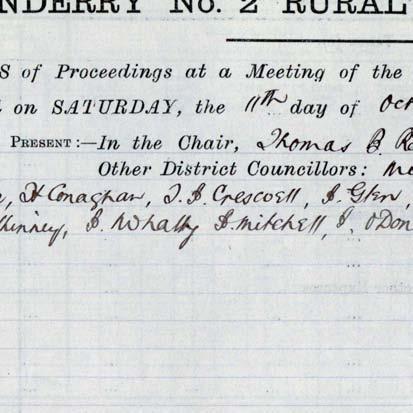 NDERRY No. 2 RURAL
S of Proceedings at a Meeting of the
on SATURDAY, the 11th day of Oct
PRESENT:—In the Chair, Thomas B.
Other District Councillors:
H Conaghan, J. B. Cresswell, J. Glen,
J. Whally J. Mitchell, J. O'Don